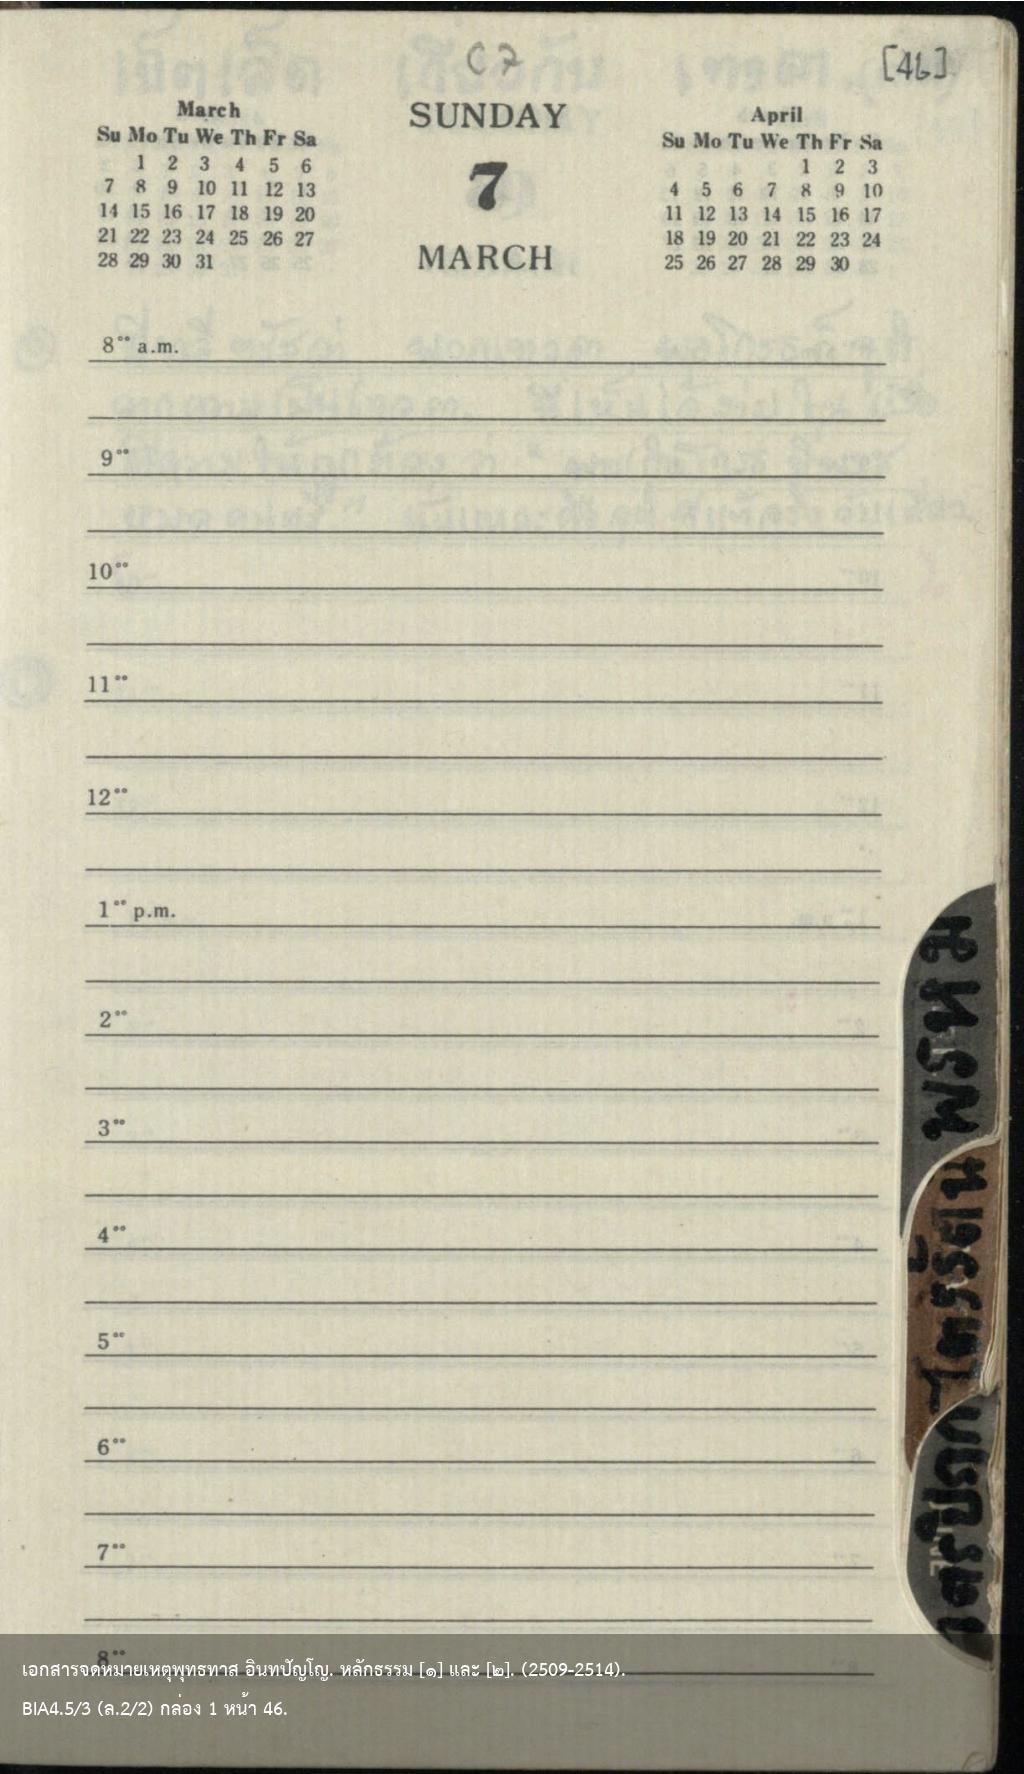 C7
[46]
March
Su Mo Tu We Th Fr Sa
1 2 3 4 5 6
7 8 9 10 11 12 13
14 15 16 17 18 19 20
21 22 23 24 25 26 27
28 29 30 31
SUNDAY
7
MARCH
April
Su Mo Tu We Th Fr Sa
1 2 3
4 5 6 7 8 9 10
11 12 13 14 15 16 17
18 19 20 21 22 23 24
25 26 27 28 29 30
8°° a.m.
9°°
10°°
11°°
12°°
1°° p.m.
2°°
3°°
4°°
5°°
6°°
7°°
8°°
พรหม
ไตรรัตน
ไตรปิฎก
เอกสารจดหมายเหตุพุทธทาส อินทปัญโญ. หลักธรรม [๑] และ [๒]. (2509-2514).
BIA4.5/3 (ล.2/2) กล่อง 1 หน้า 46.